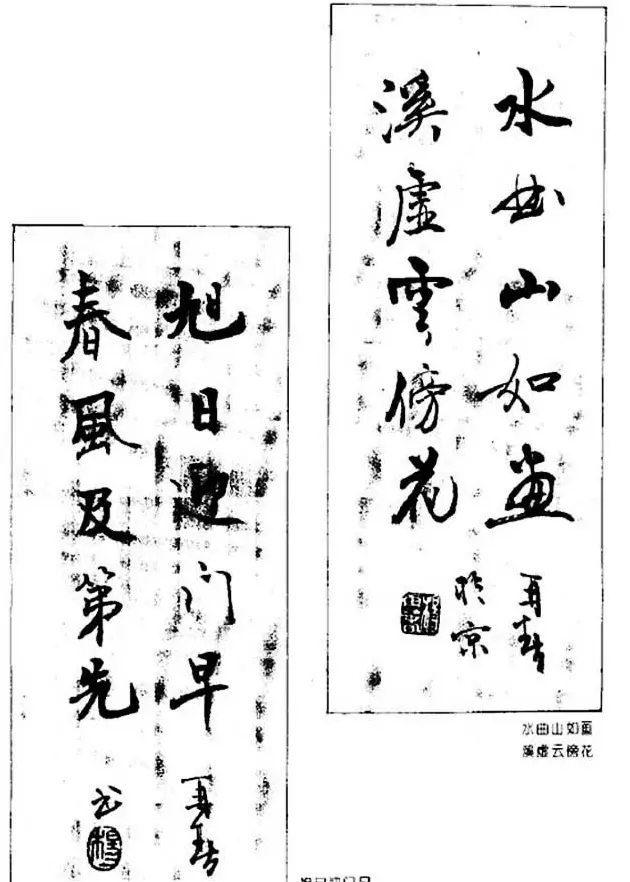 水曲山如畫
溪虛雲傍花
於京
水曲山如画
溪虚云傍花
旭日迎门早
春風及第先
书